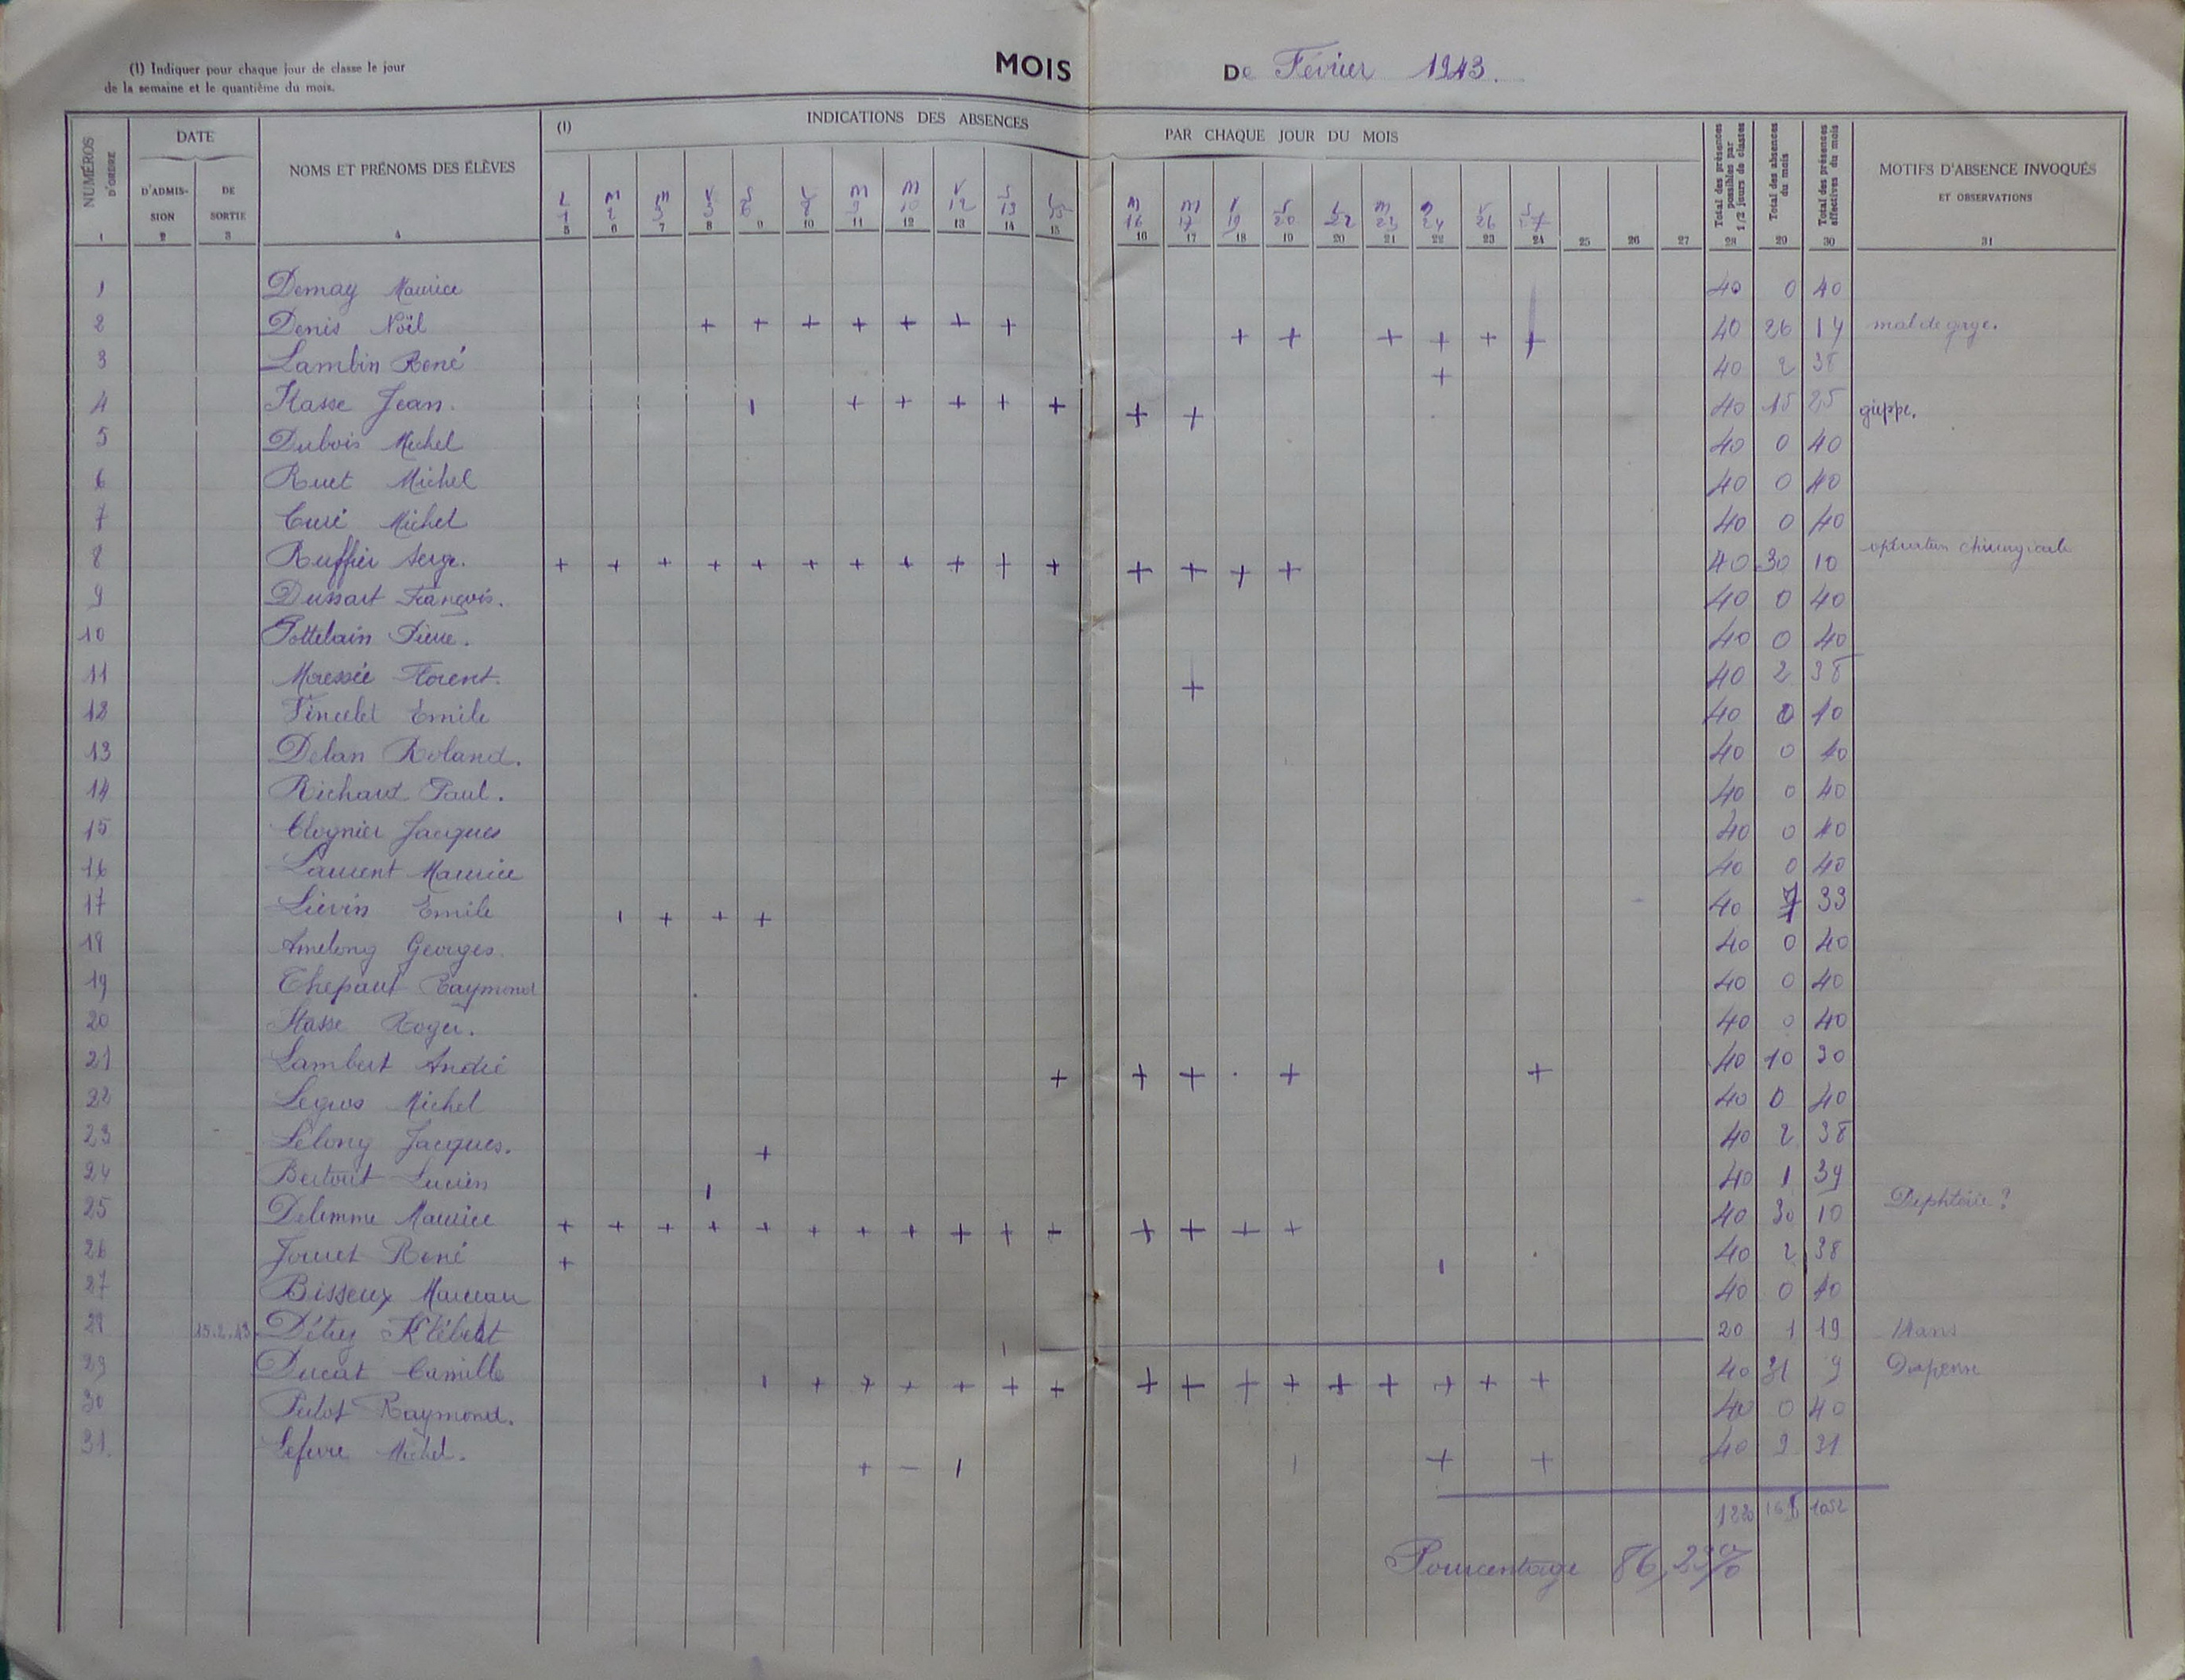 (1) Indiquer pour chaque jour de classe le jour
de la semaine et le quantième du mois.
MOIS DE Février 1943.
NUMÉROS D'ORDRE
DATE
D'ADMISSION
DE SORTIE
NOMS ET PRÉNOMS DES ÉLÈVES
(1) INDICATIONS DES ABSENCES PAR CHAQUE JOUR DU MOIS
Total des présences possibles par 1/2 jours de classes
Total des absences du mois
Total des présences effectives du mois
MOTIFS D'ABSENCE INVOQUÉS
ET OBSERVATIONS
L M M V S L M M V S L M M V S L M V S
1 2 3 5 6 8 9 10 12 13 15 16 17 19 20 22 23 24 26 27
1 2 3 4 5 6 7 8 9 10 11 12 13 14 15 16 17 18 19 20 21 22 23 24 25 26 27 28 29 30 31
1 Demay Maurice 40 0 40
2 Denis Noël + + + + + + + + + + + + + 40 26 14 mal de gorge.
3 Lambin René + 40 2 38
4 Stasse Jean. I + + + + + + + 40 15 25 grippe.
5 Dubois Michel 40 0 40
6 Ruet Michel 40 0 40
7 Curé Michel 40 0 40
8 Ruffier Serge. + + + + + + + + + + + + + + + 40 30 10 opération chirurgicale
9 Dussart François. 40 0 40
10 Pottelain Pierre. 40 0 40
11 Florent. + 40 2 38
12 Emile 40 0 40
13 Delan Roland. 40 0 40
14 Richard Paul. 40 0 40
15 Jacques 40 0 40
16 Laurent Maurice 40 0 40
17 Liévin Emile I + + + 40 7 33
18 Amelong Georges. 40 0 40
19 Chepaut Raymond 40 0 40
20 Stasse Roger. 40 0 40
21 Lambert André + + + + + 40 10 30
22 Legros Michel 40 0 40
23 Lelong Jacques. + 40 2 38
24 Bertout Lucien I 40 1 39
25 Delemme Maurice + + + + + + + + + + + + + + + 40 30 10 Diphtérie ?
26 Jouet René + I 40 2 38
27 Bisseux Marceau 40 0 40
28 15.2.43 Détrez Klébert I 20 1 19 14 ans
29 Ducat Camille I + + + + + + + + + + + + + + + 40 31 9 Dispense
30 Raymond. 40 0 40
31. Lefevre Michel. + – I I + + 40 9 31
1220 168 1052
Pourcentage 86,23%